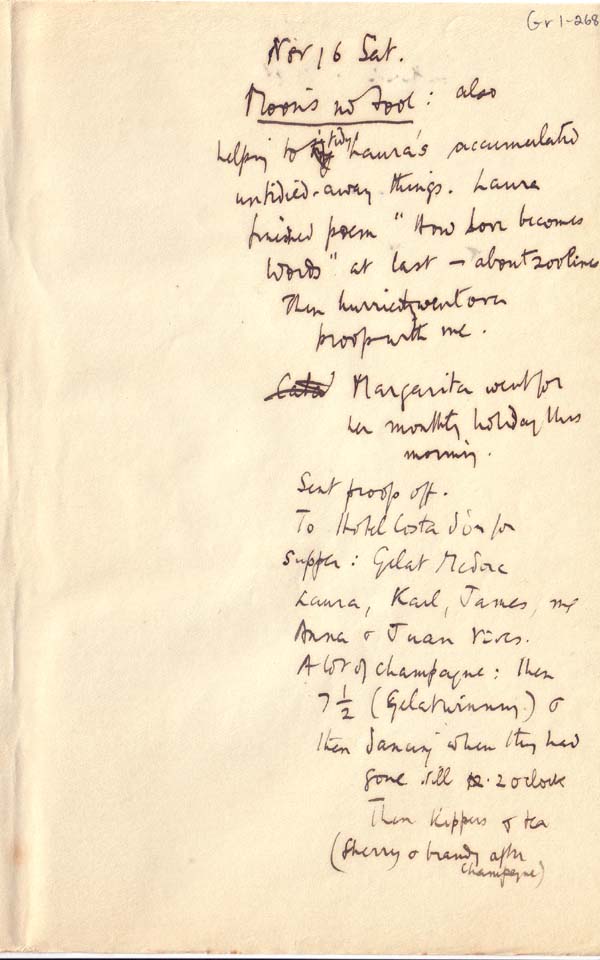 Gr 1-268
Nov 16 Sat.
Moon's no Fool: also
helping to tidy Laura's accumulated
untidied-away things. Laura
finished poem "How love becomes
Words" at last – about 200 lines
Then hurriedly went over
proofs with me.
Margarita went for
her monthly holiday this
morning.
Sent proofs off.
To Hotel Costa d'or for
supper: Gelat Medora
Laura, Karl, James, me
Anna & Juan Vives.
A lot of champagne: then
7 1/2 (Gelat winning) &
then dancing when they had
gone till 2 oclock
Then kippers & tea
(Sherry & brandy after
champagne)